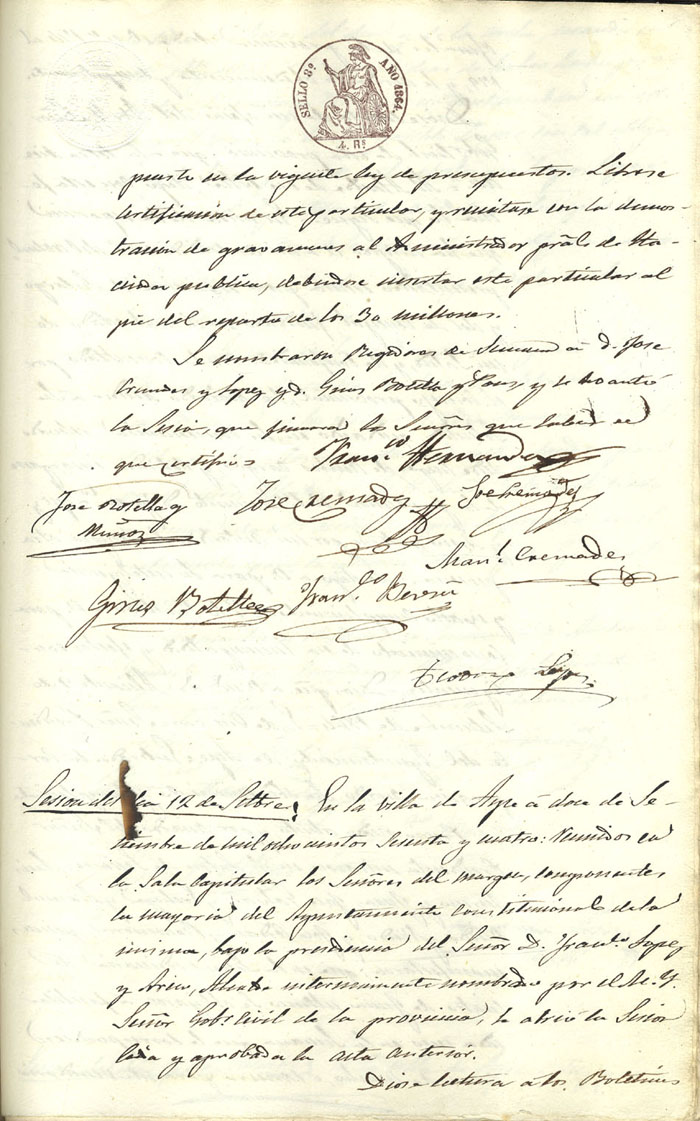 SELLO 8º AÑO 1864.
4. Rs
puesto en la vigente ley de presupuestos. Librese
certificacion de este particular, y remitase con la demos-
tracion de gravamenes al Administrador pral. de Ha-
cienda publica, debiendose insertar este particular al
pie del reparto de los 30 millones.
Se nombraron Regidores de Semana á D. Jose
Cremades y Lopez y D. Gines Botella y, y se levantó
la Sesion, que firmaron los Señores que saben de
que certifico
Franco Hernandez
Jose Botella y
Muñoz
Jose Cremades
Jose Cremades
Manl. Cremades
Gines Botella
Franco
Teodoro Lopez
Sesion del dia 12 de Setbre. En la villa de Aspe á doce de Se-
tiembre de mil ochocientos sesenta y cuatro: reunidos en
la Sala Capitular los Señores del margen, componentes
la mayoria del Ayuntamiento constitucional de la
misma, bajo la presidencia del Señor D. Franco. Lopez
y, Alcalde interinamente nombrado por el M. Y.
Señor Gobr. Civil de la provincia, se abrió la Sesion
leida y aprobada la acta anterior.
Diose lectura a los Boletines